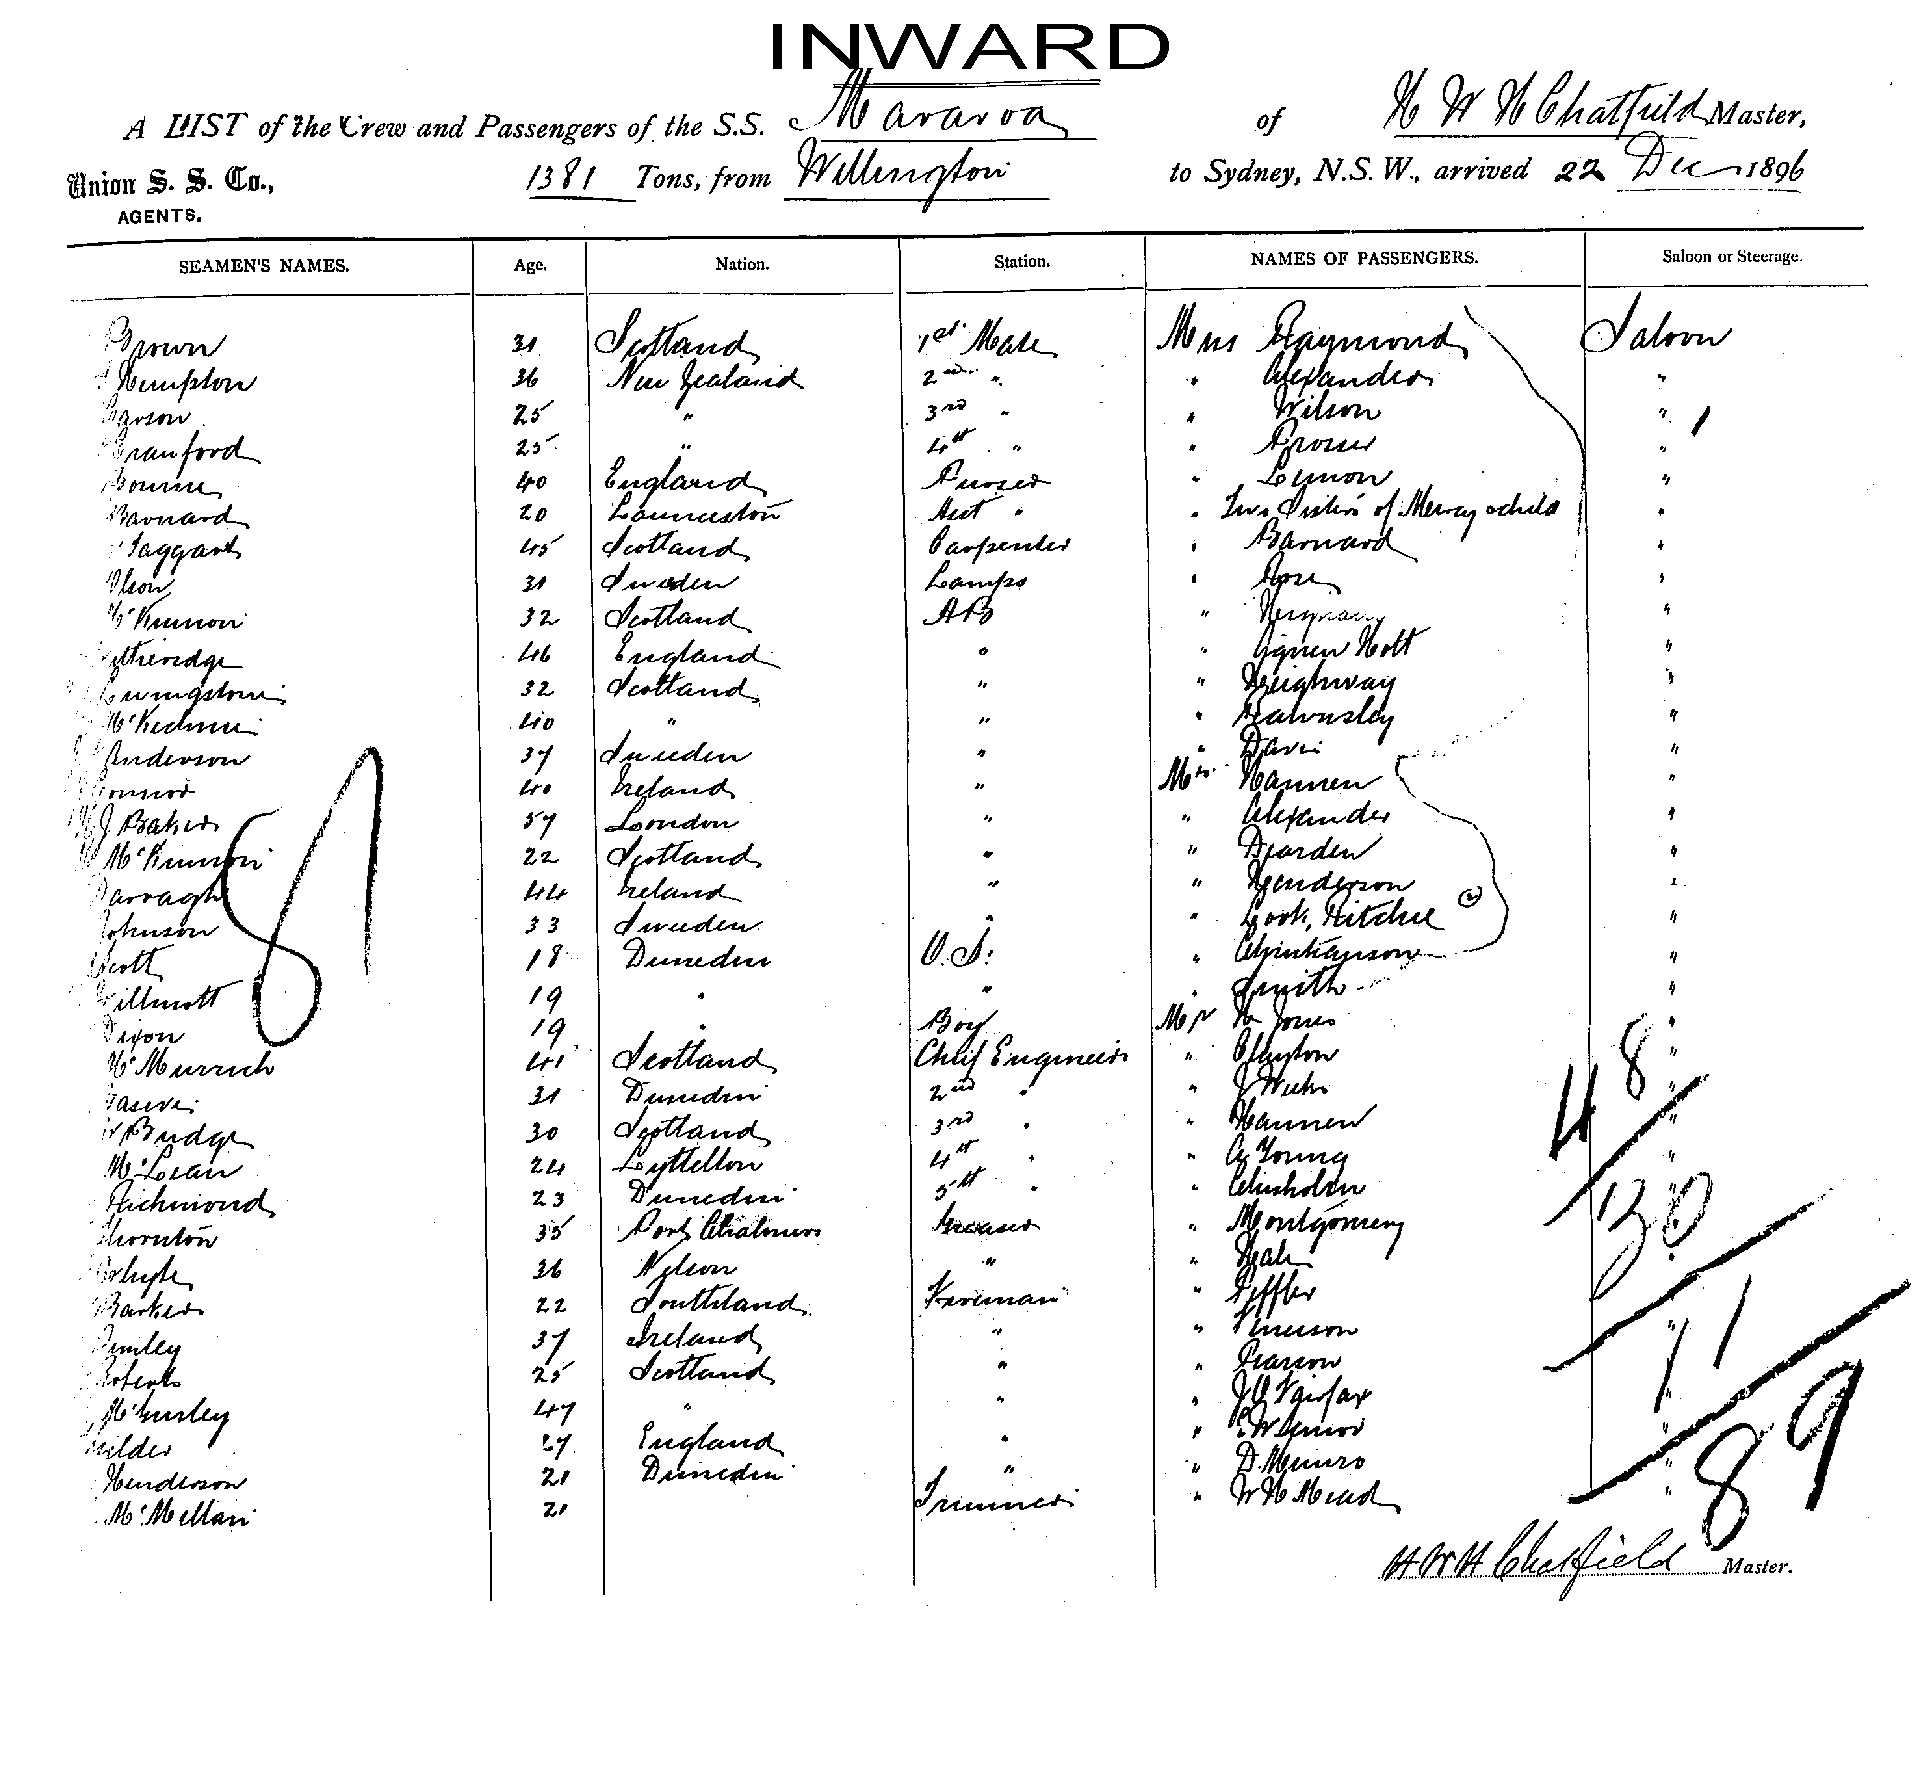 INWARD
A LIST of the Crew and Passengers of the S.S. Mararoa of H W H Chatfield Master,
Union S. S. Co., AGENTS. 1381 Tons, from Wellington to Sydney, N.S.W., arrived 22 Dec 1896
SEAMEN'S NAMES. Age. Nation. Station. NAMES OF PASSENGERS. Saloon or Steerage.
Brown 31 Scotland 1st Mate Miss Raymond Saloon
Hempton 36 New Zealand 2nd " " Alexander "
25 " 3rd " " Wilson " 1
Cranford 25 " 4th " " Prosser "
Bourne 40 England Purser " Lemon "
Barnard 20 Launceston Asst " " Two Sisters of Mercy & child "
Taggart 45 Scotland Carpenter " Barnard "
Olson 31 Sweden Lamps " Rose "
McKinnon 32 Scotland AB " "
Etheridge 46 England " " Agnes Holt "
Livingstone 32 Scotland " " Heighway "
McKechnie 40 " " " Rawnsley "
Anderson 37 Sweden " " Davis "
Connor 40 Ireland " Mrs Hannen "
J Baker 57 London " " Alexander "
McKinnon 22 Scotland " " Dearden "
Darragh 44 Ireland " " Henderson "
Johnson 33 Sweden " " Cook, Ritchie (2) "
Scott 18 Dunedin O.S. " Christianson "
Willmott 19 " " " Smith "
Dixon 19 " Boy Mr H Jones "
McMurrich 41 Scotland Chief Engineer " Clayton "
31 Dunedin 2nd " " J Weeks "
Budge 30 Scotland 3rd " " Hannen "
McLean 24 Lyttelton 4th " " A Young "
Richmond 23 Dunedin 5th " " Chisholm "
Thornton 35 Port Chalmers Greaser " Montgomery "
36 Nelson " " Heale "
Barker 22 Southland Fireman " "
37 Ireland " " "
Roberts 25 Scotland " " Pearson "
McGinley 47 " " " J O Fairfax "
27 England " " "
Henderson 21 Dunedin " " D Munro "
McMillan 21 Trimmer " W H Mead "
87
48
30
11
89
H W H Chatfield Master.